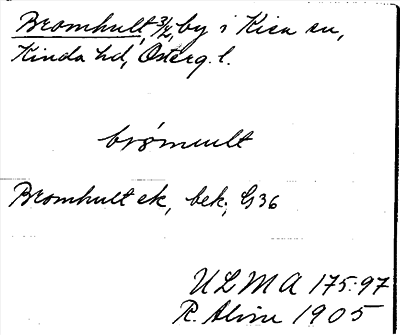 Bromhult, 3/4, by i Kisa sn,
Kinda hd, Österg. l.
brömult
Bromhult ek, bek; G36
ULMA 175:97
R. Alire 1905